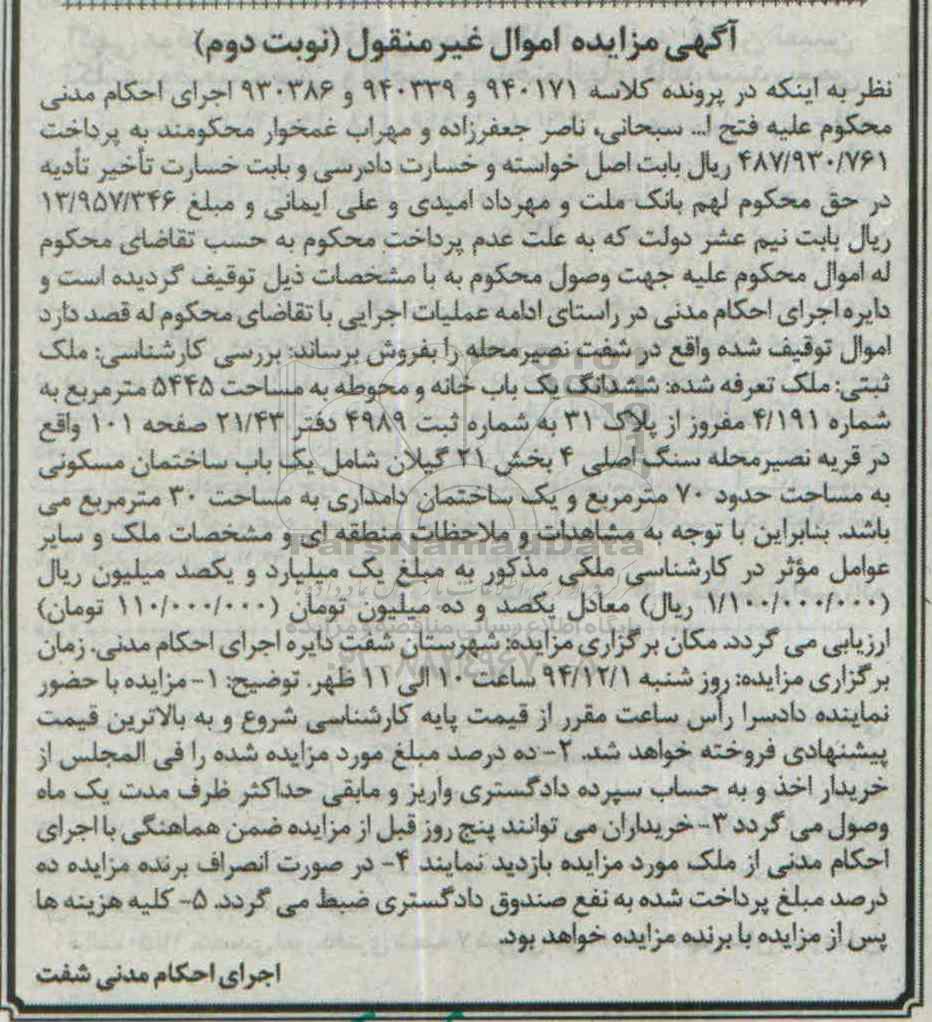 آگهی مزایده اموال غیرمنقول (نوبت دوم)
نظر به اینکه در پرونده کلاسه ۹۴۰۱۷۱ و ۹۴۰۳۳۹ و ۹۳۰۳۸۶ اجرای احکام مدنی
محکوم علیه فتح ا... سبحانی، ناصر جعفرزاده و مهراب غمخوار محکومند به پرداخت
۴۸۷/۹۳۰/۷۶۱ ریال بابت اصل خواسته و خسارت دادرسی و بابت خسارت تأخیر تأدیه
در حق محکوم لهم بانک ملت و مهرداد امیدی و علی ایمانی و مبلغ ۱۳/۹۵۷/۳۴۶
ریال بابت نیم عشر دولت که به علت عدم پرداخت محکوم به حسب تقاضای محکوم
له اموال محکوم علیه جهت وصول محکوم به با مشخصات ذیل توقیف گردیده است و
دایره اجرای احکام مدنی در راستای ادامه عملیات اجرایی با تقاضای محکوم له قصد دارد
اموال توقیف شده واقع در شفت نصیرمحله را بفروش برساند: بررسی کارشناسی: ملک
ثبتی: ملک تعرفه شده: ششدانگ یک باب خانه و محوطه به مساحت ۵۴۴۵ مترمربع به
شماره ۴/۱۹۱ مفروز از پلاک ۳۱ به شماره ثبت ۴۹۸۹ دفتر ۲۱/۴۳ صفحه ۱۰۱ واقع
در قریه نصیرمحله سنگ اصلی ۴ بخش ۲۱ گیلان شامل یک باب ساختمان مسکونی
به مساحت حدود ۷۰ مترمربع و یک ساختمان دامداری به مساحت ۳۰ مترمربع می
باشد. بنابراین با توجه به مشاهدات و ملاحظات منطقه ای و مشخصات ملک و سایر
عوامل مؤثر در کارشناسی ملکی مذکور به مبلغ یک میلیارد و یکصد میلیون ریال
(۱/۱۰۰/۰۰۰/۰۰۰ ریال) معادل یکصد و ده میلیون تومان (۱۱۰/۰۰۰/۰۰۰ تومان)
ارزیابی می گردد. مکان برگزاری مزایده: شهرستان شفت دایره اجرای احکام مدنی. زمان
برگزاری مزایده: روز شنبه ۹۴/۱۲/۱ ساعت ۱۰ الی ۱۱ ظهر. توضیح: ۱- مزایده با حضور
نماینده دادسرا رأس ساعت مقرر از قیمت پایه کارشناسی شروع و به بالاترین قیمت
پیشنهادی فروخته خواهد شد. ۲- ده درصد مبلغ مورد مزایده شده را فی المجلس از
خریدار اخذ و به حساب سپرده دادگستری واریز و مابقی حداکثر ظرف مدت یک ماه
وصول می گردد ۳- خریداران می توانند پنج روز قبل از مزایده ضمن هماهنگی با اجرای
احکام مدنی از ملک مورد مزایده بازدید نمایند ۴- در صورت انصراف برنده مزایده ده
درصد مبلغ پرداخت شده به نفع صندوق دادگستری ضبط می گردد. ۵- کلیه هزینه ها
پس از مزایده با برنده مزایده خواهد بود.
اجرای احکام مدنی شفت
ParsNamadData